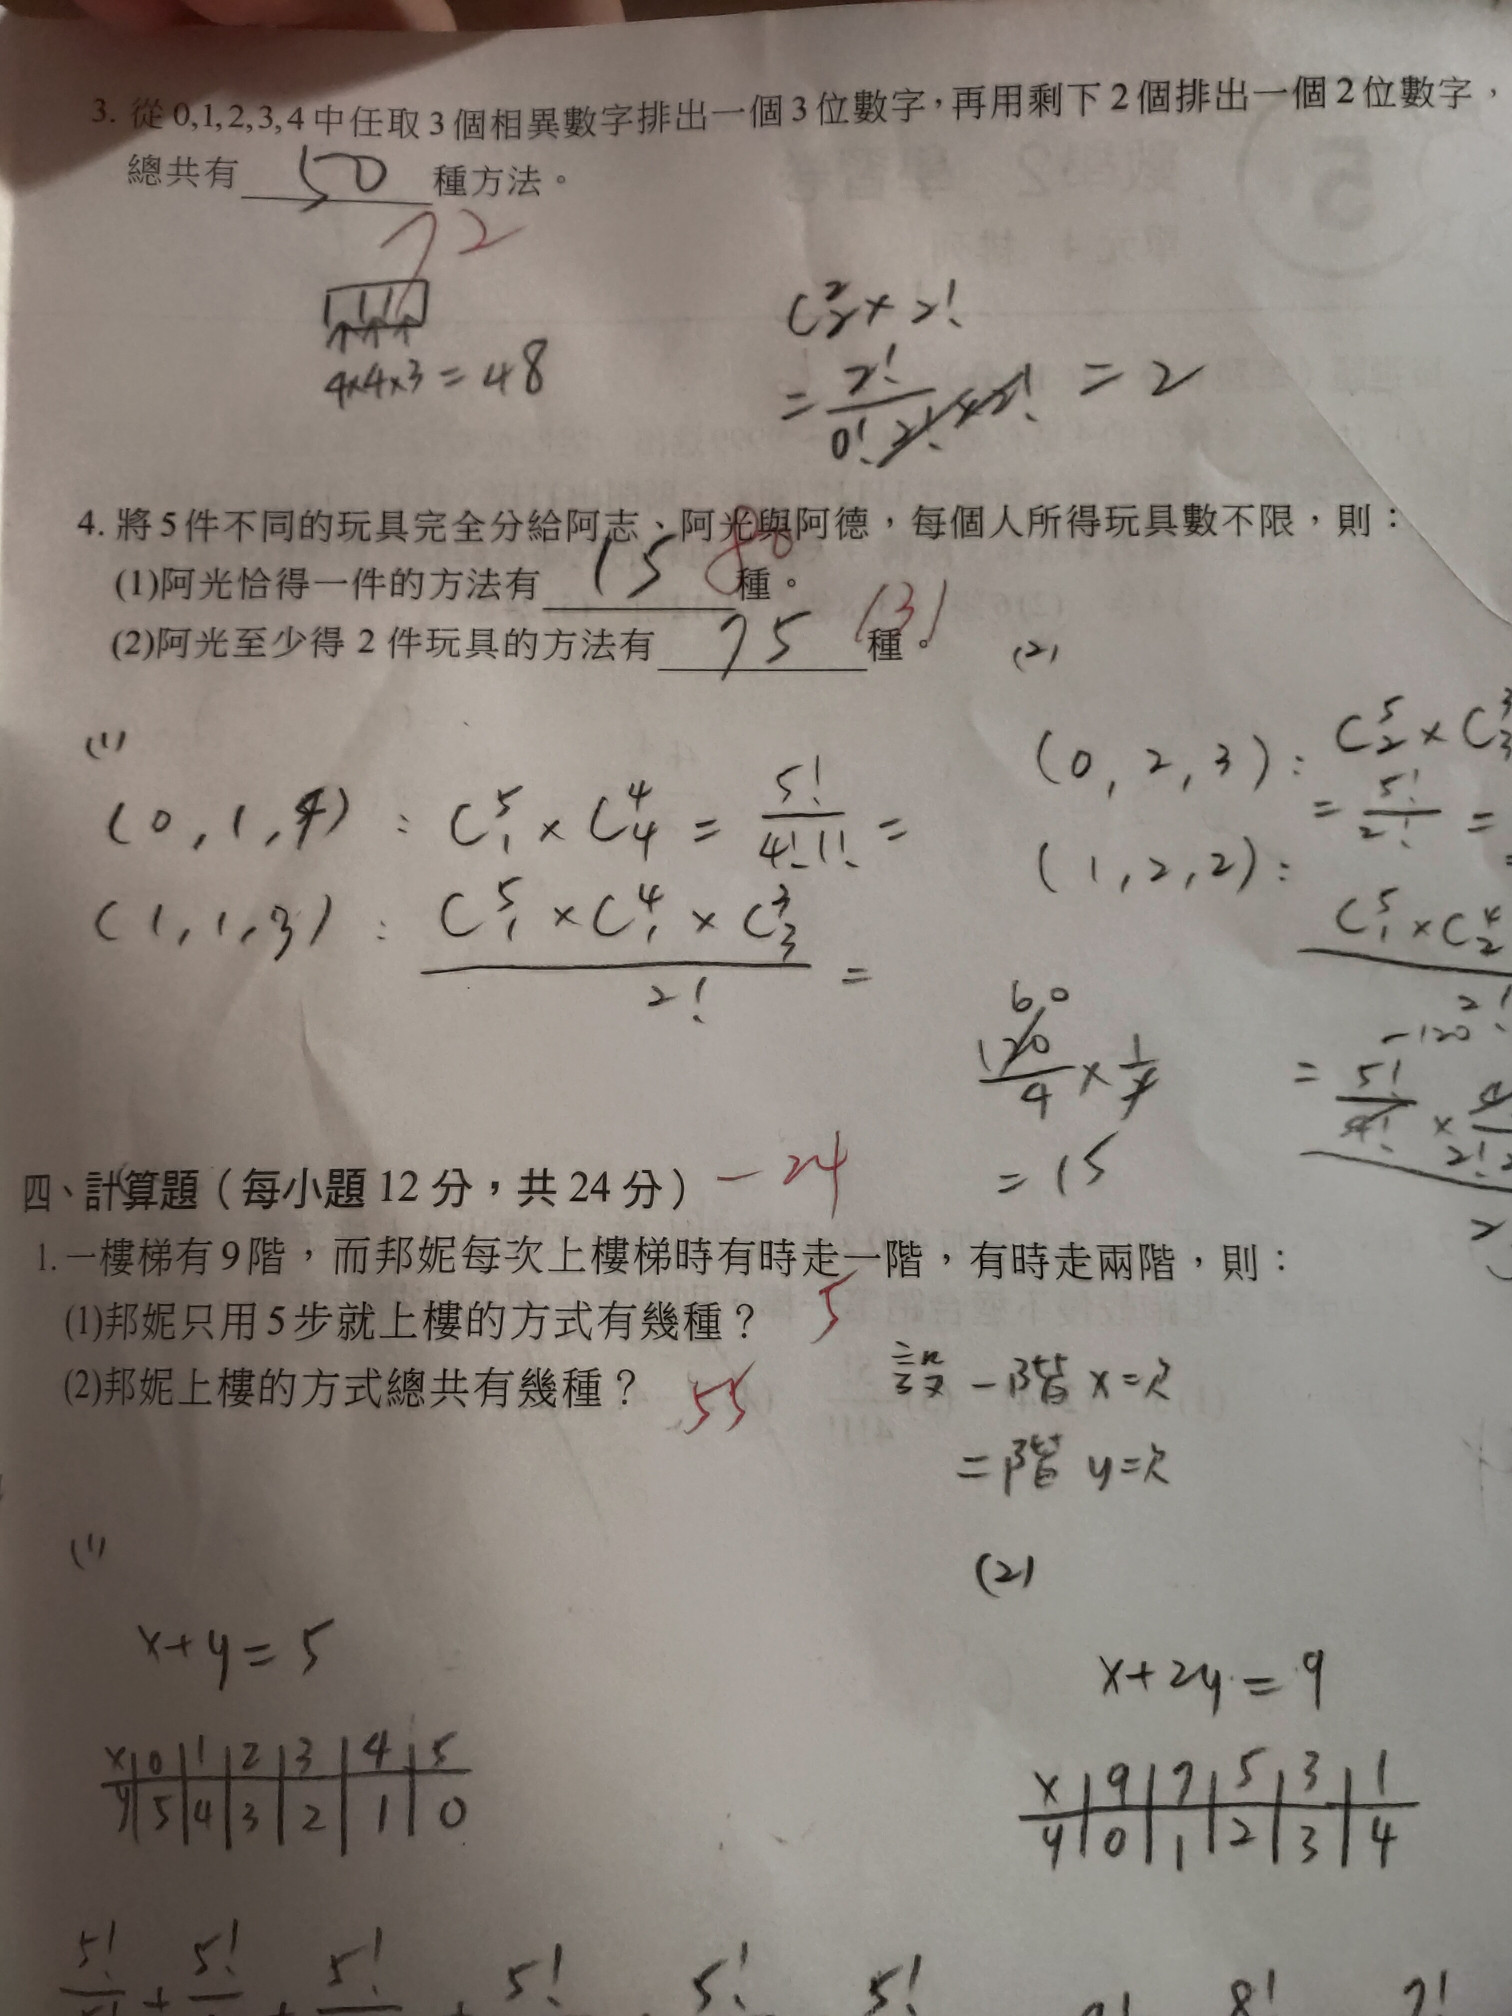 3. 從0,1,2,3,4中任取3個相異數字排出一個3位數字，再用剩下2個排出一個2位數字，
總共有 50 種方法。
72
4×4×3=48
C²₂×2!
= 2!/0!2! ×2! = 2
4. 將5件不同的玩具完全分給阿志、阿光與阿德，每個人所得玩具數不限，則：
(1)阿光恰得一件的方法有 15 種。 80
(2)阿光至少得 2 件玩具的方法有 75 種。 131
(1)
(0,1,4) : C⁵₁×C⁴₄ = 5!/4!1! =
(1,1,3) : C⁵₁×C⁴₁×C³₃/2! =
(2)
(0,2,3) : C⁵₂×C³₃
= 5!/2! =
(1,2,2) :
C⁵₁×C⁴₂
2!
60
120/4 ×
= 15
四、計算題（每小題12分，共24分） -24
1. 一樓梯有9階，而邦妮每次上樓梯時有時走一階，有時走兩階，則：
(1)邦妮只用5步就上樓的方式有幾種？ 5
(2)邦妮上樓的方式總共有幾種？ 55
設 一階 x=次
二階 y=次
(1)
x+y=5
x 0 1 2 3 4 5
y 5 4 3 2 1 0
(2)
x+2y=9
x 9 7 5 3 1
y 0 1 2 3 4
5! + 5! + 5! + 5! 5! 5!
8! 7!